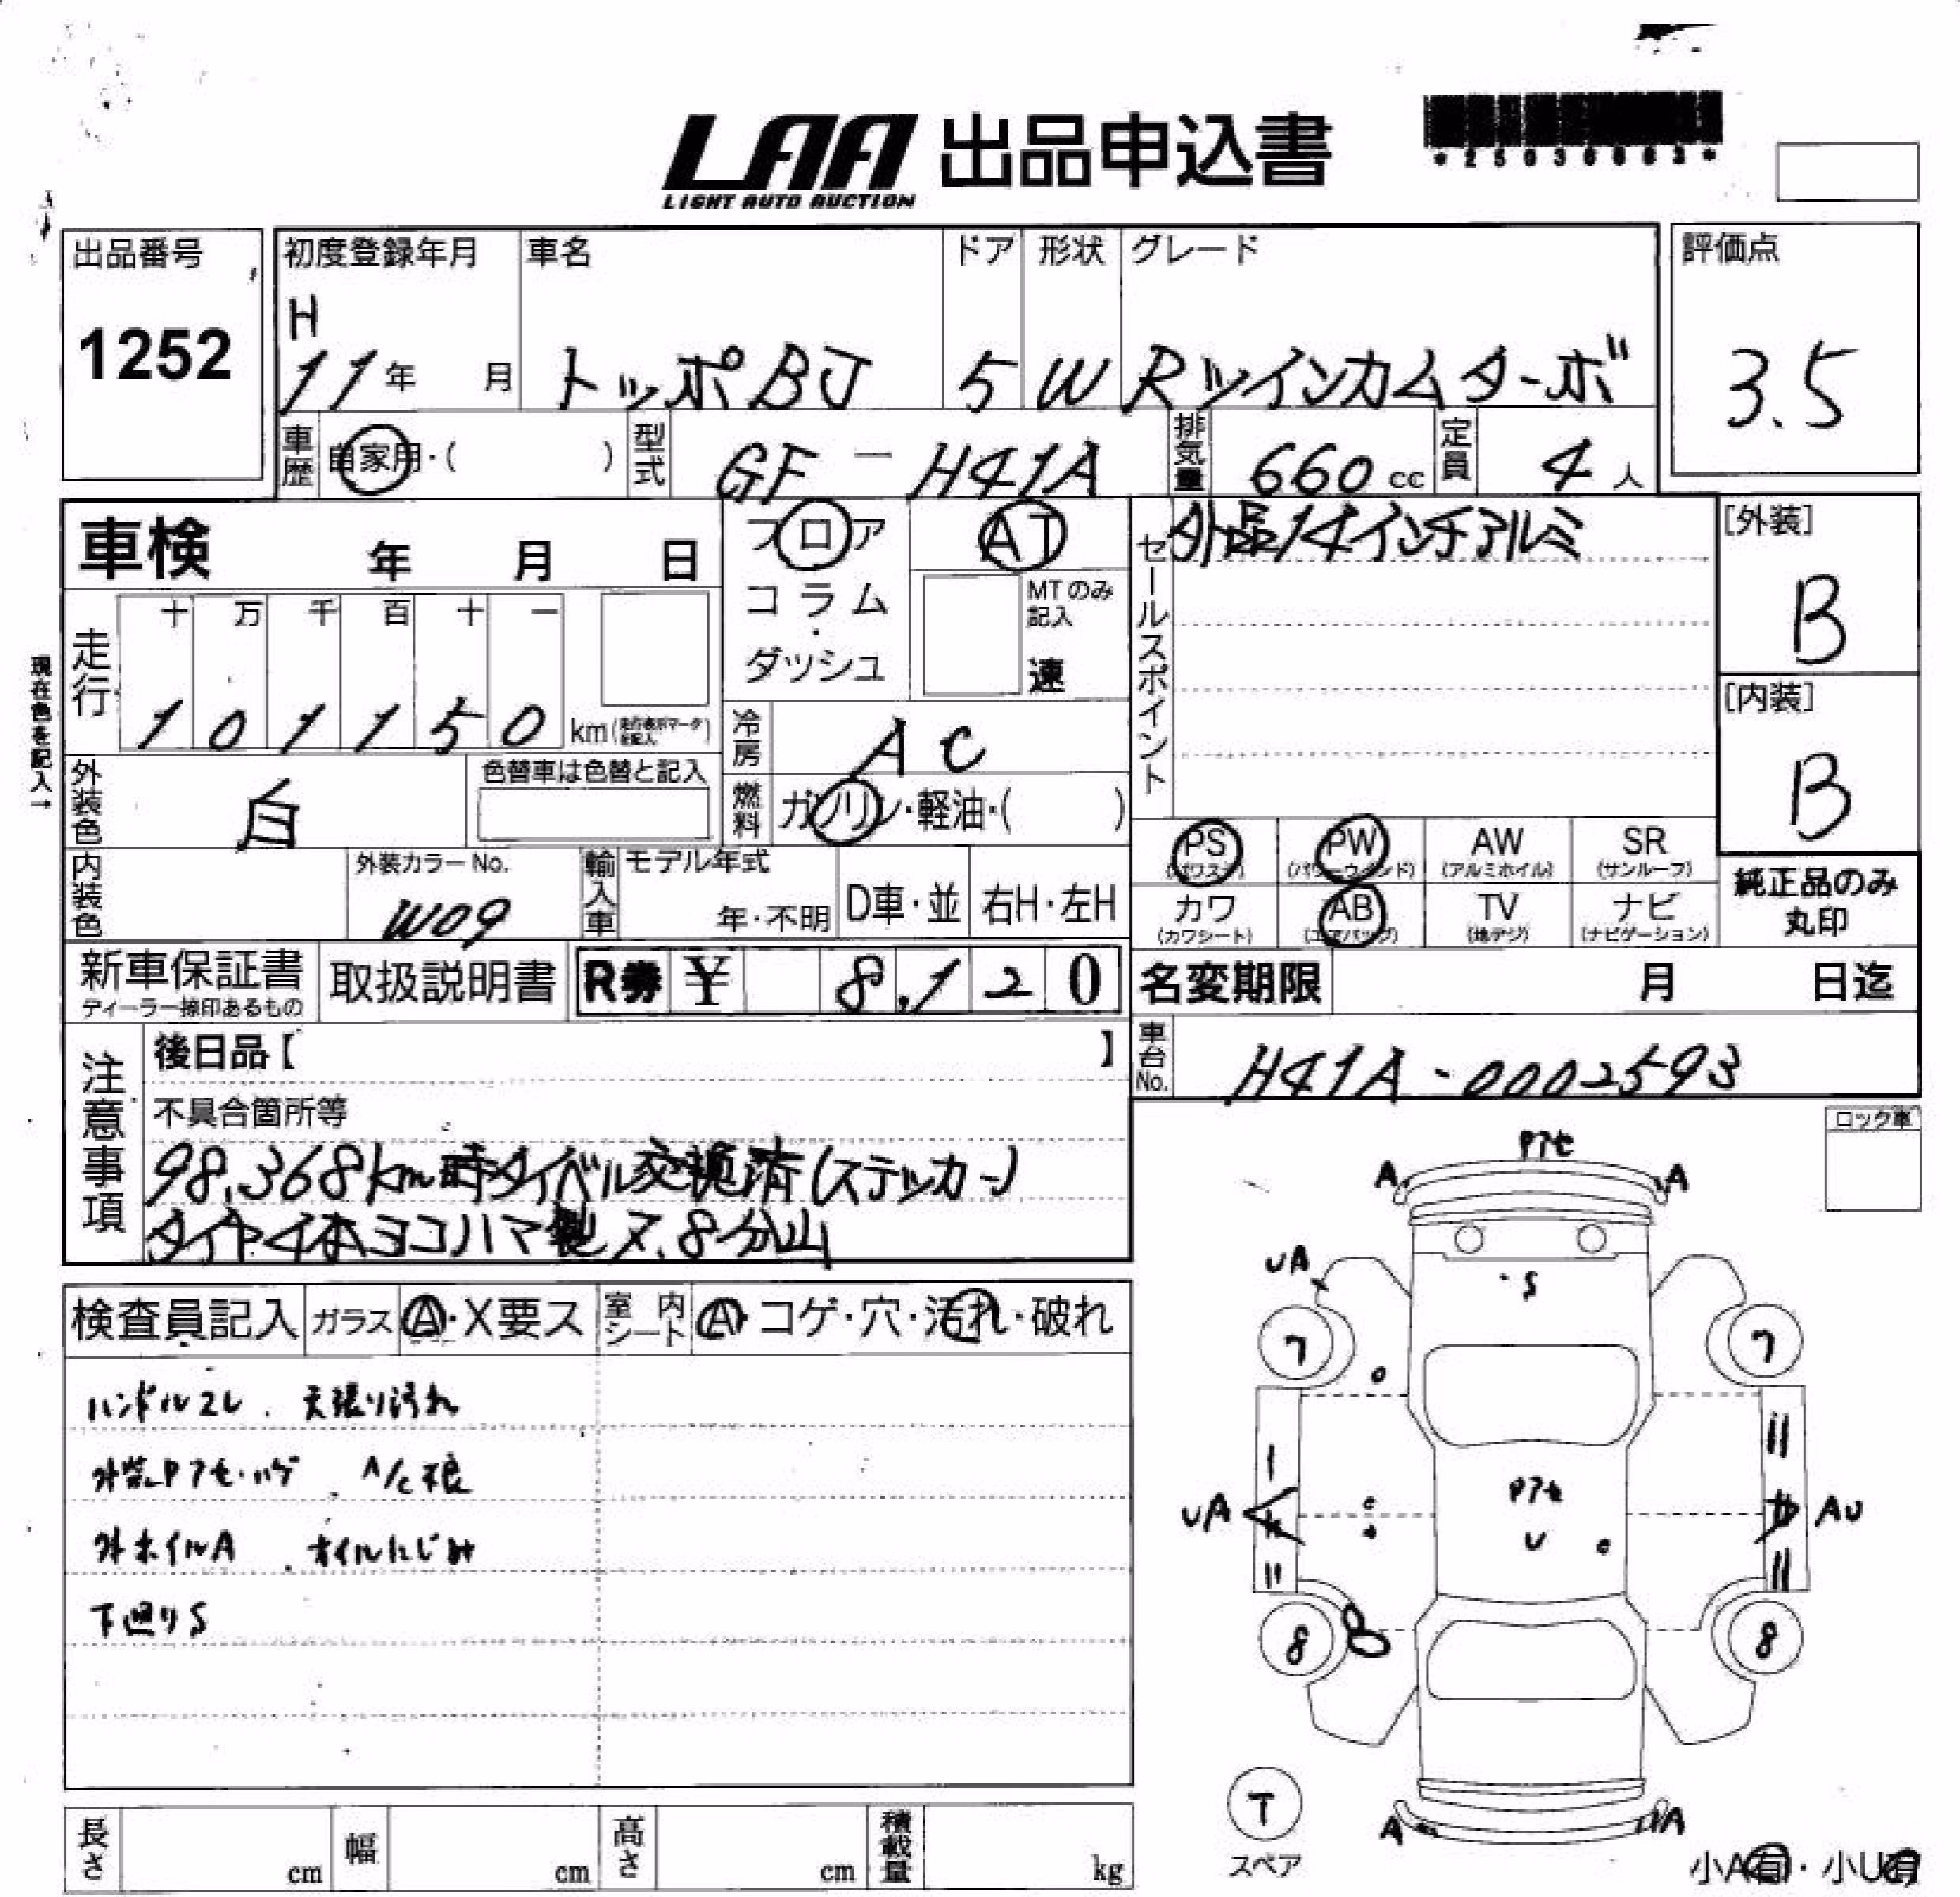 LAA 出品申込書
LIGHT AUTO AUCTION
*25030863*
出品番号
1252
初度登録年月
H
11年 月
車名
トッポBJ
ドア
5
形状
W
グレード
Rツインカムターボ
評価点
3.5
車歴
自家用・( )
型式
GF - H41A
排気量
660cc
定員
4人
車検 年 月 日
フロア
コラム
・
ダッシュ
AT
MTのみ
記入
速
セールスポイント
外品14インチアルミ
[外装]
B
[内装]
B
現在色を記入→
走行
十 万 千 百 十 一
1 0 1 1 5 0 km
冷房
AC
外装色
白
色替車は色替と記入
燃料
ガソリン・軽油・( )
PS
(パワステ)
PW
(パワーウインド)
AW
(アルミホイル)
SR
(サンルーフ)
カワ
(カワシート)
AB
(エアバッグ)
TV
(地デジ)
ナビ
(ナビゲーション)
純正品のみ
丸印
内装色
外装カラーNo.
W09
輸入車
モデル年式
年・不明
D車・並
右H・左H
新車保証書
ディーラー捺印あるもの
取扱説明書
R券 ¥ 8,120
名変期限 月 日迄
車台No.
H41A-0002593
注意事項
後日品【 】
不具合箇所等
98,368km時タイベル交換済(ステッカー)
タイヤ4本ヨコハマ製7.8分山
ロック車
検査員記入
ガラス
A・X要ス
室内シート
A・コゲ・穴・汚れ・破れ
ハンドルスレ . 天張り汚れ
外装Pアセ・ハゲ . A/C不良
外ホイルA . オイルにじみ
下廻りS
Pアセ
A A
UA
・S
7 7
UA
Pアセ
U
AU
8 8
T
スペア
A A
小A有・小U有
長さ cm
幅 cm
高さ cm
積載量 kg